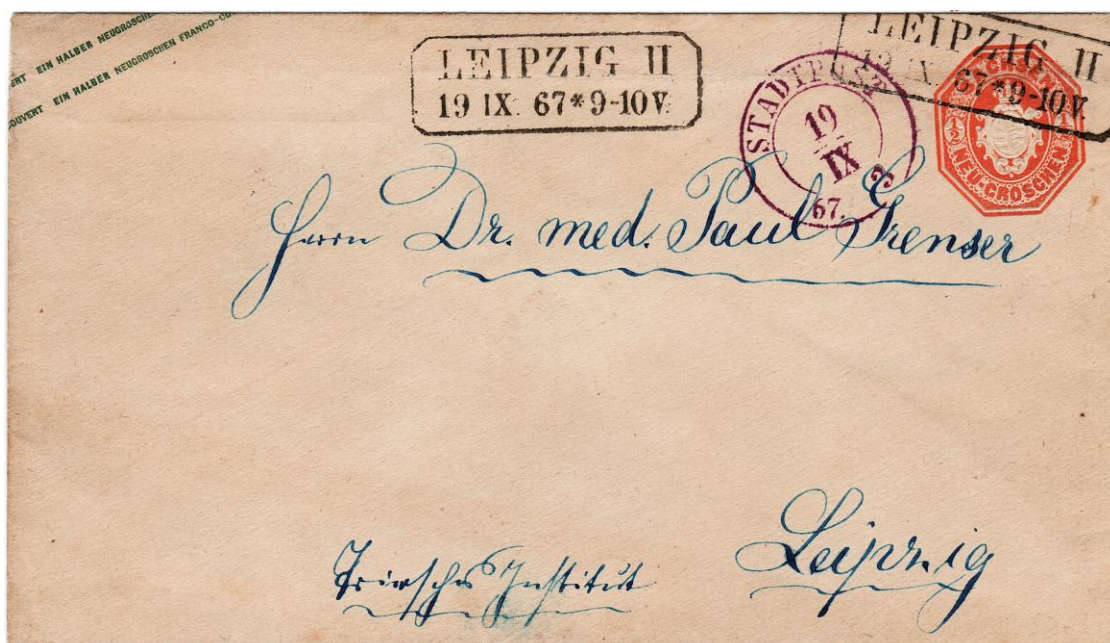 EIN HALBER NEUGROSCHEN
COUVERT EIN HALBER NEUGROSCHEN FRANCO-COU
LEIPZIG II
19 IX. 67*9-10V.
STADTPOST
19
IX
67.
3
LEIPZIG II
19 IX. 67*9-10V.
SACHSEN
½ ½
NEU-GROSCHEN
Herrn Dr. med. Paul Grenser
Leipzig
Triersches Institut